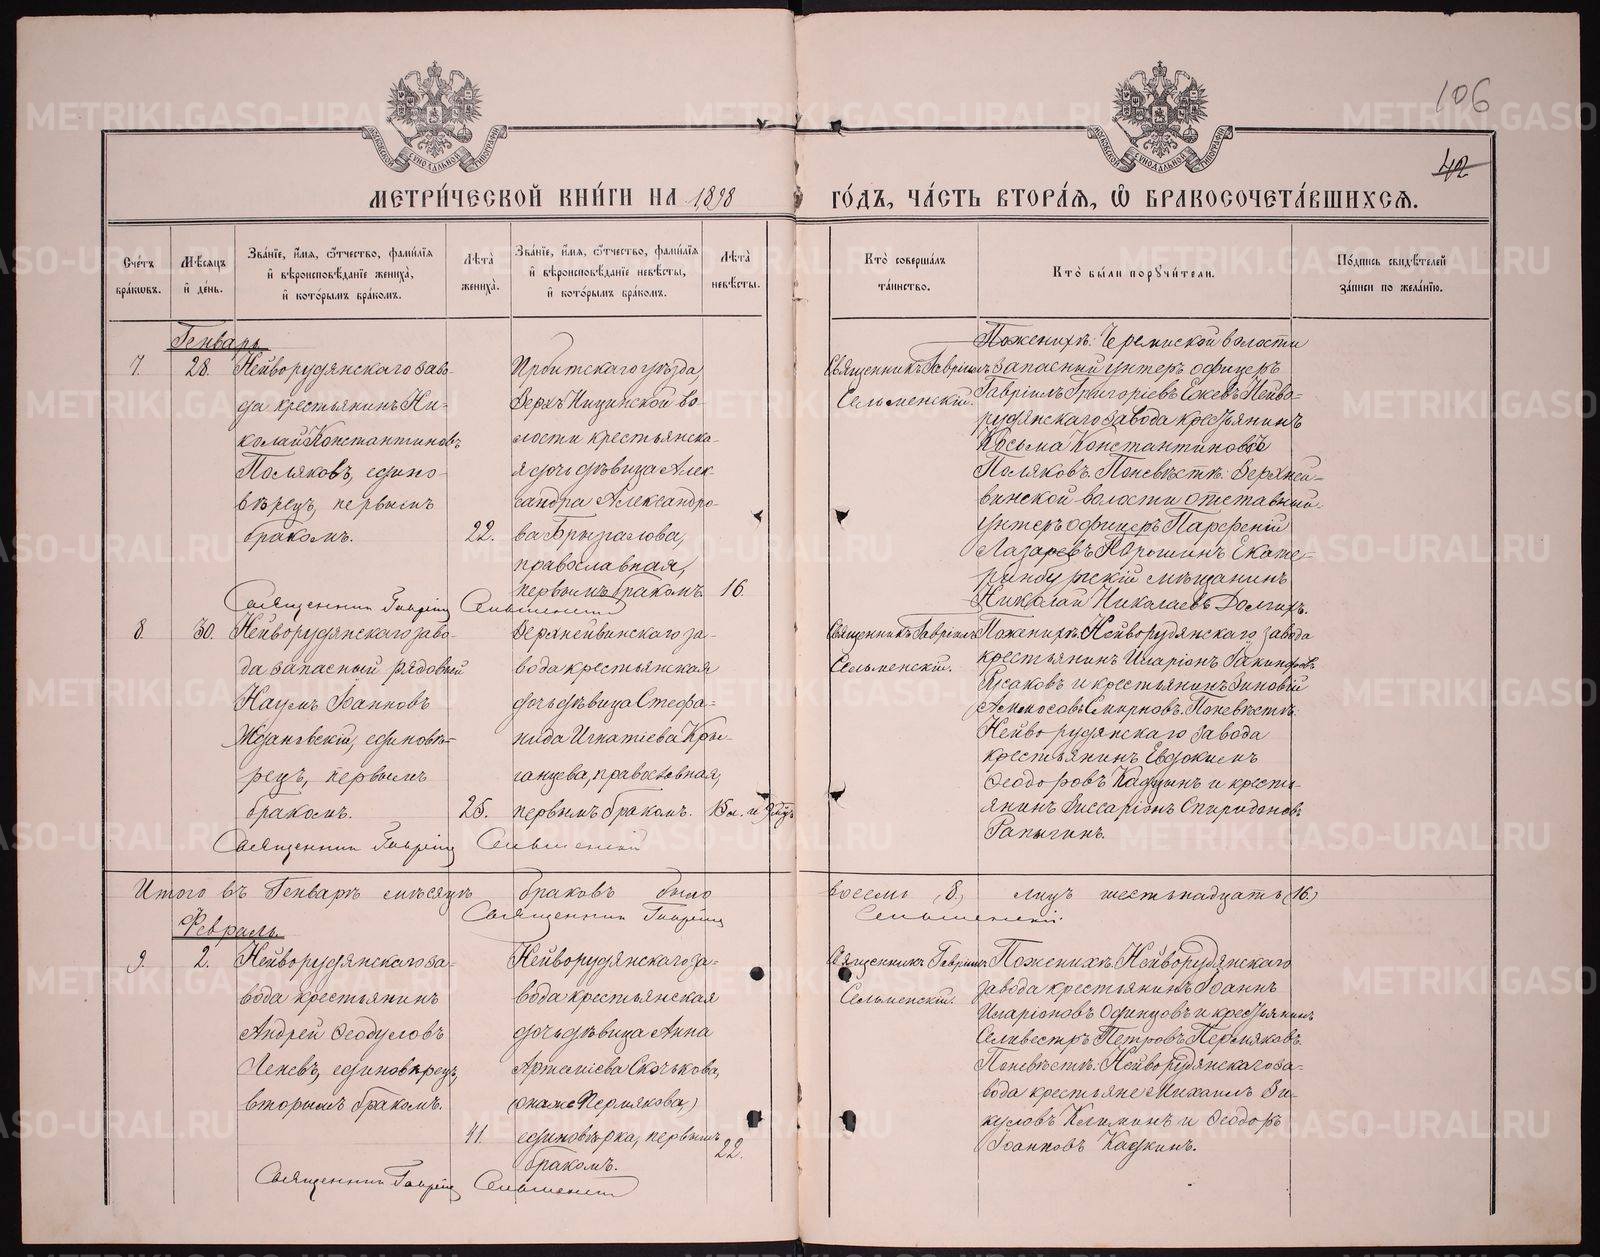 106
42
МЕТРИ́ЧЕСКОЙ КНИ́ГИ НА 1898
ГО́ДЪ, ЧА́СТЬ ВТОРА́Я, Ѡ БРАКОСОЧЕТА́ВШИХСЯ.
Сче́тъ бра́ковъ.
Мѣ́сяцъ и де́нь.
Зва́нїе, и́мя, ѻ́тчество, фами́лїя и вѣроисповѣ́данїе жениха̀, и кото́рымъ бра́комъ.
Лѣта̀ жениха̀.
Зва́нїе, и́мя, ѻ́тчество, фами́лїя и вѣроисповѣ́данїе невѣ́сты, и кото́рымъ бра́комъ.
Лѣта̀ невѣ́сты.
Кто̀ соверша́лъ та́инство.
Кто̀ бы́ли порꙋчи́тели.
По́дпись свидѣ́телей за́писи по жела́нїю.
Генварь
7.
28.
Нейворудянскаго заво-
да крестьянинъ Ни-
колай Константиновъ
Поляковъ, едино-
вѣрецъ, первымъ
бракомъ.
22.
Ирбитскаго уѣзда,
Верхъ Ницинской во-
лости крестьянска-
я дочь дѣвица Алек
сандра Александро-
ва Брызгалова,
православная,
первымъ бракомъ.
16.
Священникъ Гавріилъ
Сельменскій.
По женихѣ: Черемиской волости
запасный унтеръ офицеръ
Гавріилъ Григорьевъ Ежевъ Нейво-
рудянскаго завода крестьянинъ
Косьма Константиновъ
Поляковъ. По невѣстѣ: Верхней-
винской волости отставный
унтеръ офицеръ Парфеній
Лазаревъ Порошинъ Екате-
ринбургскій мѣщанинъ
Николай Николаевъ Долгихъ.
Священникъ Гавріилъ Сельменскій
8.
30.
Нейворудянскаго заво-
да запасный рядовый
Наумъ Іоанновъ
единовѣ-
рецъ, первымъ
бракомъ.
25.
Верхнейвинскаго за-
вода крестьянская
дочь дѣвица Стефа-
нида Игнатіева
православная,
первымъ бракомъ.
15 л. и
Священникъ Гавріилъ
Сельменскій.
По женихѣ: Нейворудянскаго завода
крестьянинъ Иларіонъ
Гусаковъ и крестьянинъ Зиновій
Амосовъ Смирновъ. По невѣстѣ:
Нейворудянскаго завода
крестьянинъ Евдокимъ
Ѳеодоровъ и кресть-
янинъ Виссаріонъ Спиридоновъ
Рапыгинъ.
Священникъ Гавріилъ Сельменскій
Итого въ Генварѣ мѣсяцѣ браковъ было
восемь (8.) лицъ шестьнадцать (16.)
Священникъ Гавріилъ
Сельменскій.
Февраль.
9.
2.
Нейворудянскаго за-
вода крестьянинъ
Андрей Ѳеодуловъ
единовѣрецъ,
вторымъ бракомъ.
41.
Нейворудянскаго за-
вода крестьянская
дочь дѣвица Анна
Скочькова,
(она же Пермякова,)
единовѣрка, первымъ
бракомъ.
22.
Священникъ Гавріилъ
Сельменскій.
По женихѣ: Нейворудянскаго
завода крестьянинъ Іоаннъ
Иларіоновъ Одинцовъ и крестьянинъ
Селивестръ Петровъ Пермяковъ.
По невѣстѣ: Нейворудянскаго за-
вода крестьяне Михаилъ Ви-
куловъ Климинъ и Ѳеодоръ
Іоанновъ Кадкинъ.
Священникъ Гавріилъ Сельменскій